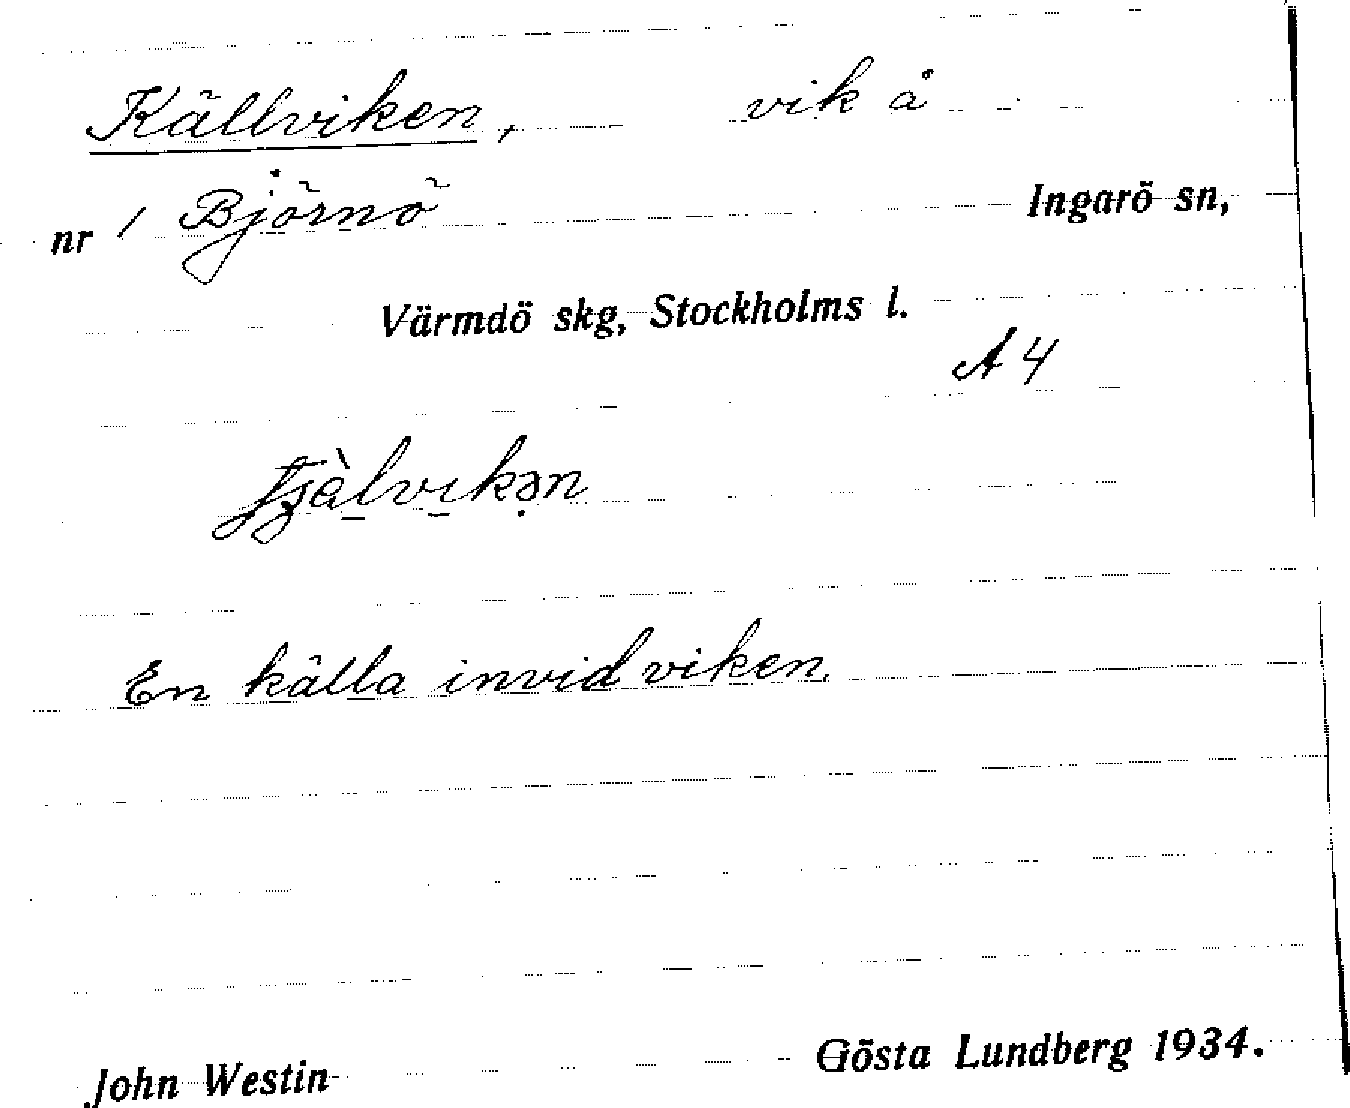 Källviken, vik å
nr 1 Björnö Ingarö sn,
Värmdö skg, Stockholms l.
A 4
En källa invid viken.
John Westin Gösta Lundberg 1934.